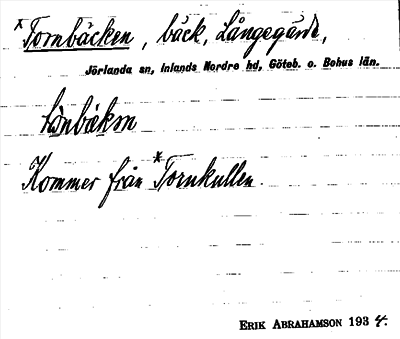 *Tornbäcken, bäck, Långegärde,
Jörlanda sn, Inlands Nordre hd, Göteb. o. Bohus län.
Kommer från *Tornkullen.
ERIK ABRAHAMSON 1934.